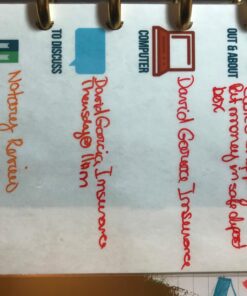 OUT & ABOUT
Put money in safe deposit
box
COMPUTER
David Garcia Insurance
TO DISCUSS
David Garcia Insurance
Thursday@ 11am
Notary Review